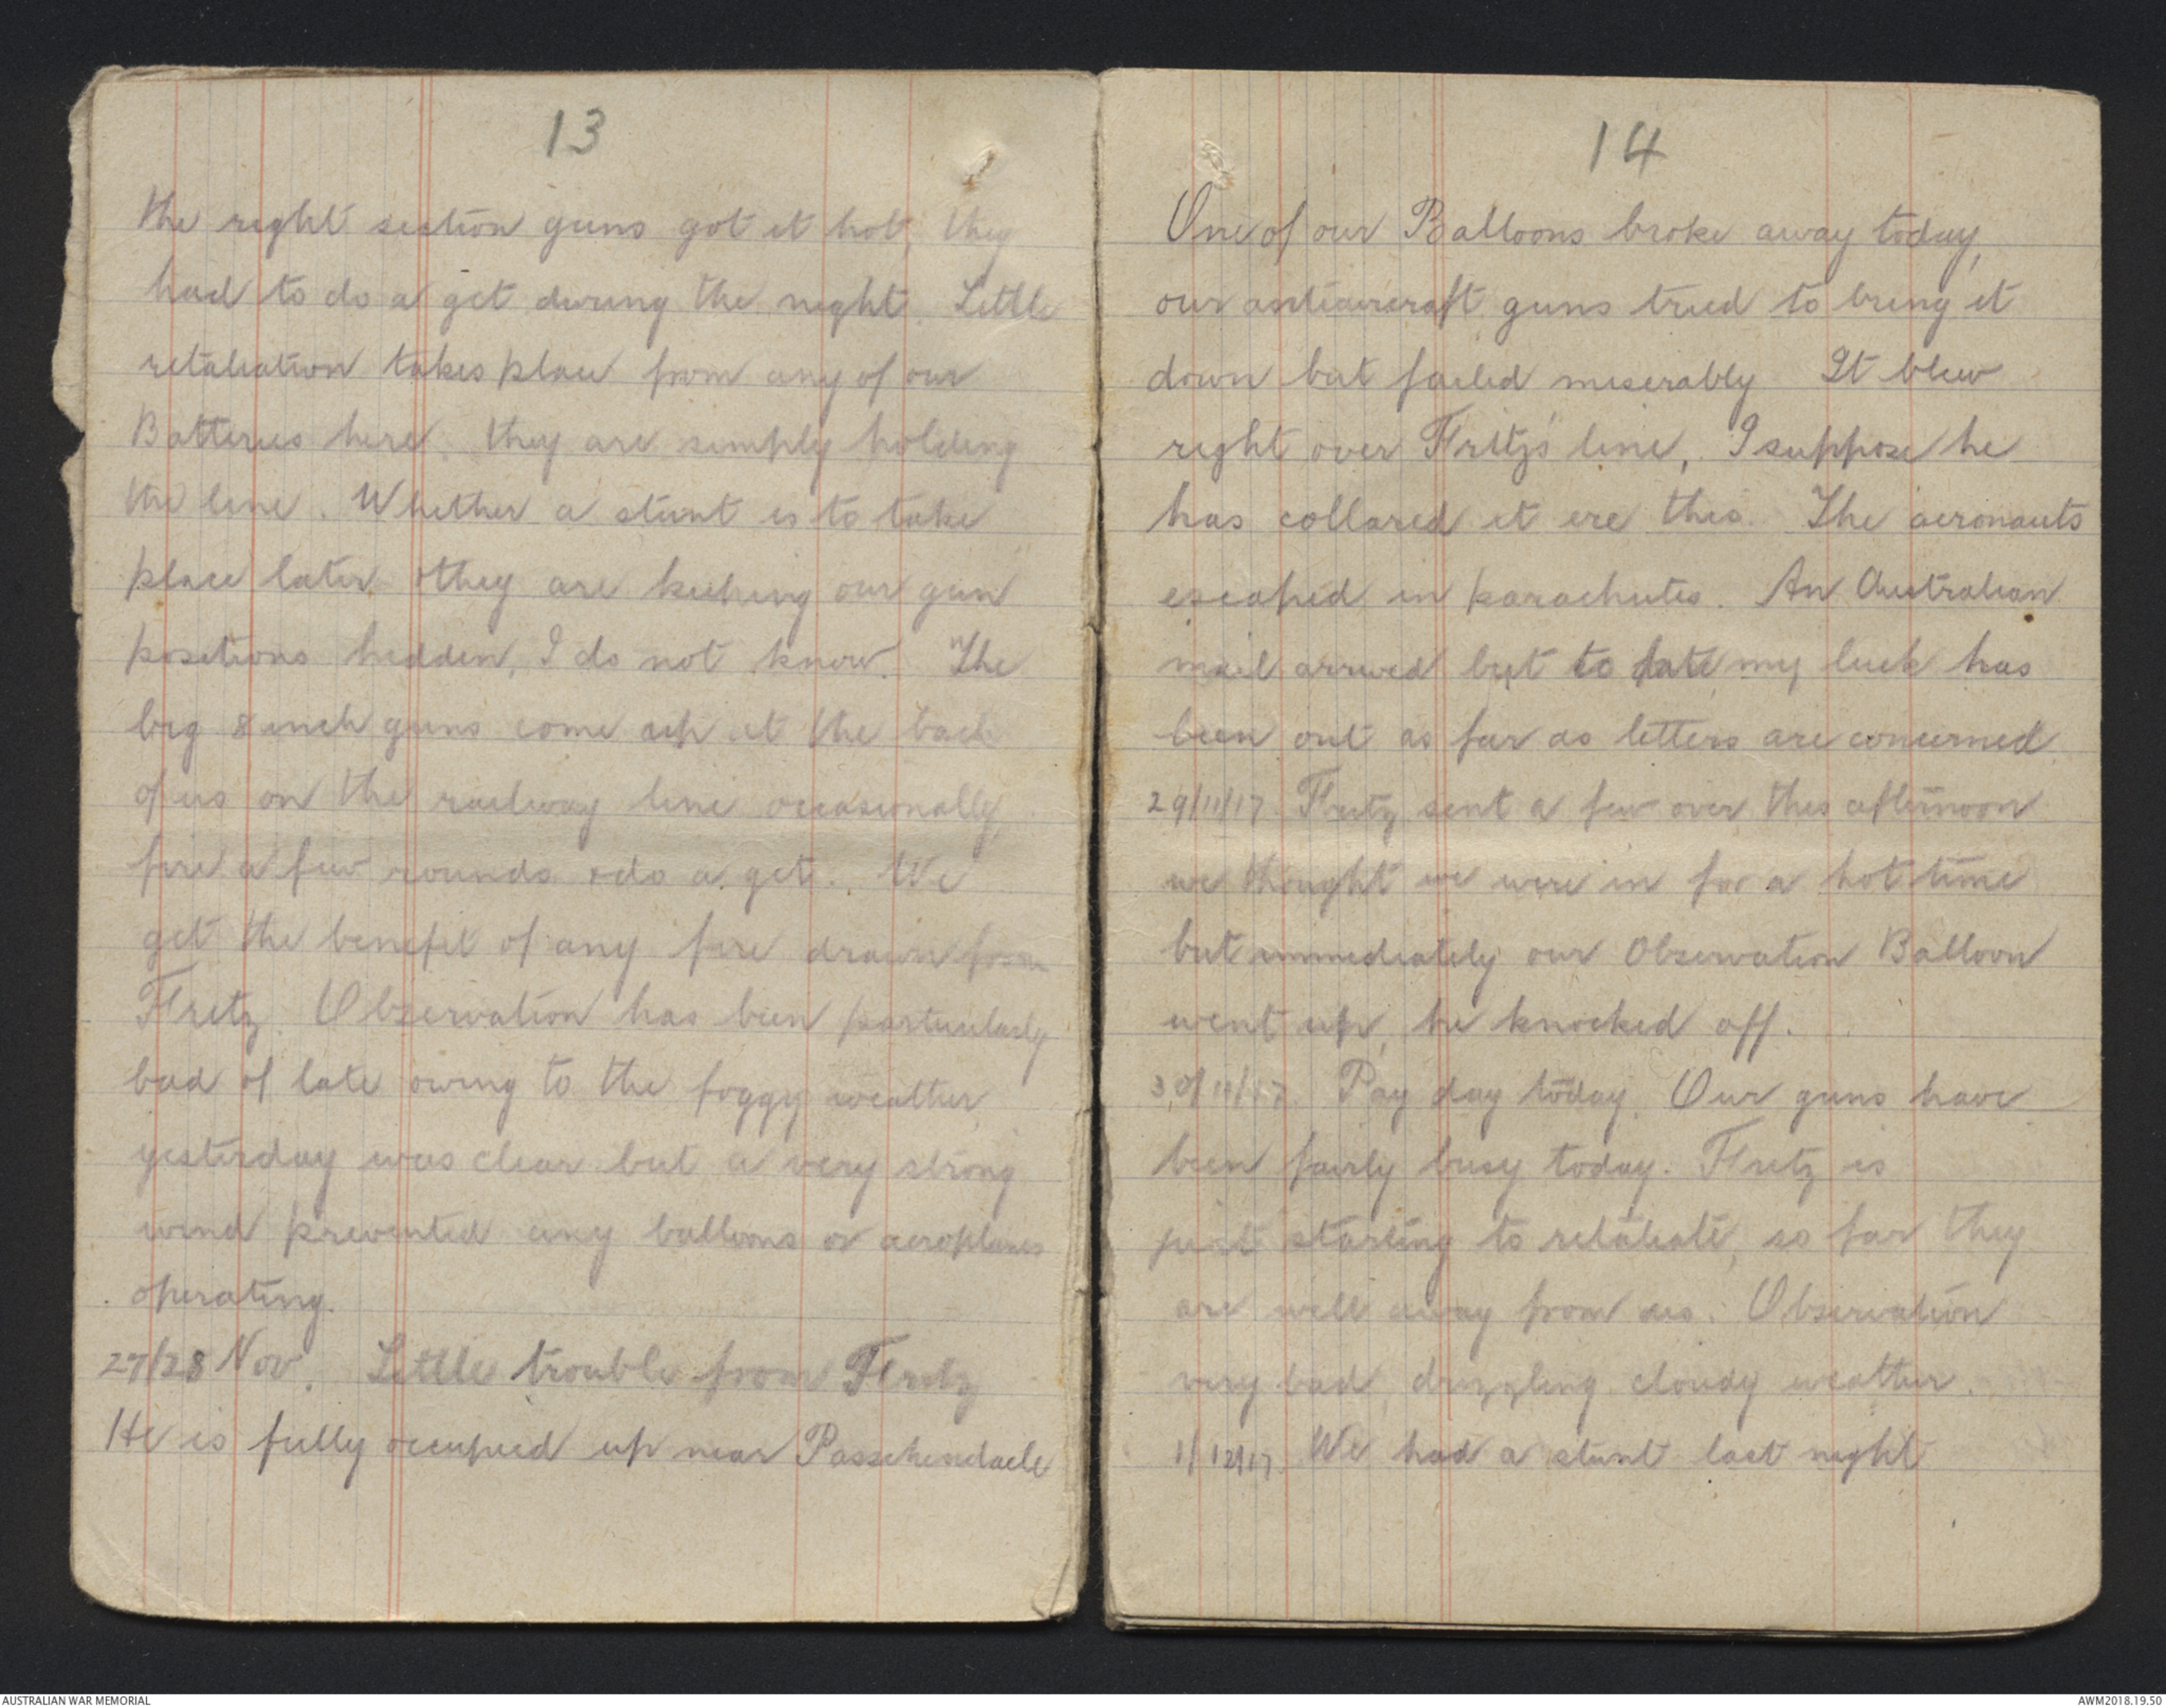 13
the right section guns got it hot, they
had to do a get during the night. Little
retaliation takes place from any of our
Batteries here. they are simply holding
the line. Whether a stunt is to take
place later & they are keeping our gun
positions hidden, I do not know. The
big 8 inch guns come up at the back
of us on the railway line occasionally,
fire a few rounds & do a get. We
get the benefit of any fire drawn from
Fritz. Observation has been particularly
bad of late owing to the foggy weather
yesterday was clear but a very strong
wind prevented any balloons or aeroplanes
operating.
27/28 Nov. Little trouble from Fritz
He is fully occupied up near Passchendaele
14
One of our Balloons broke away today,
our antiaircraft guns tried to bring it
down but failed miserably It blew
right over Fritz's line, I suppose he
has collared it ere this. The aeronauts
escaped in parachutes. An Australian
mail arrived but to date my luck has
been out as far as letters are concerned.
29/11/17. Fritz sent a few over this afternoon
we thought we were in for a hot time
but immediately our Observation Balloon
went up, he knocked off.
30/11/17. Pay day today. Our guns have
been fairly busy today. Fritz is
just starting to retaliate, so far they
are well away from us. Observation
very bad, drizzling cloudy weather.
1/12/17. We had a stunt last night
AUSTRALIAN WAR MEMORIAL
AWM2018.19.50